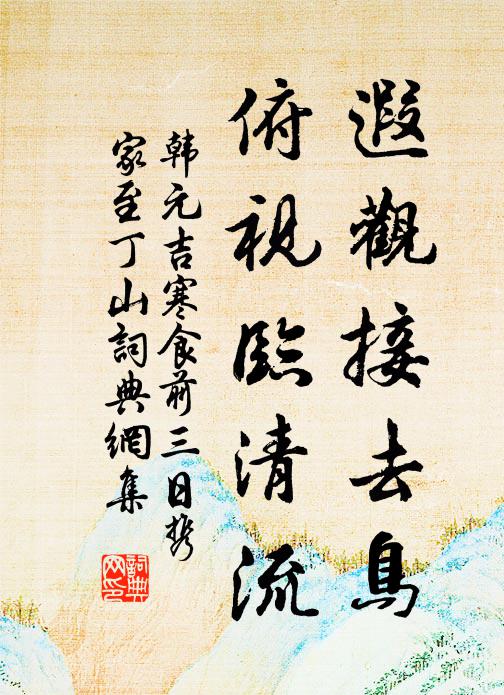 遐觀接去鳥
俯視臨清流
韩元吉寒食前三日攜
家至丁山詞典網集
詞典
网印